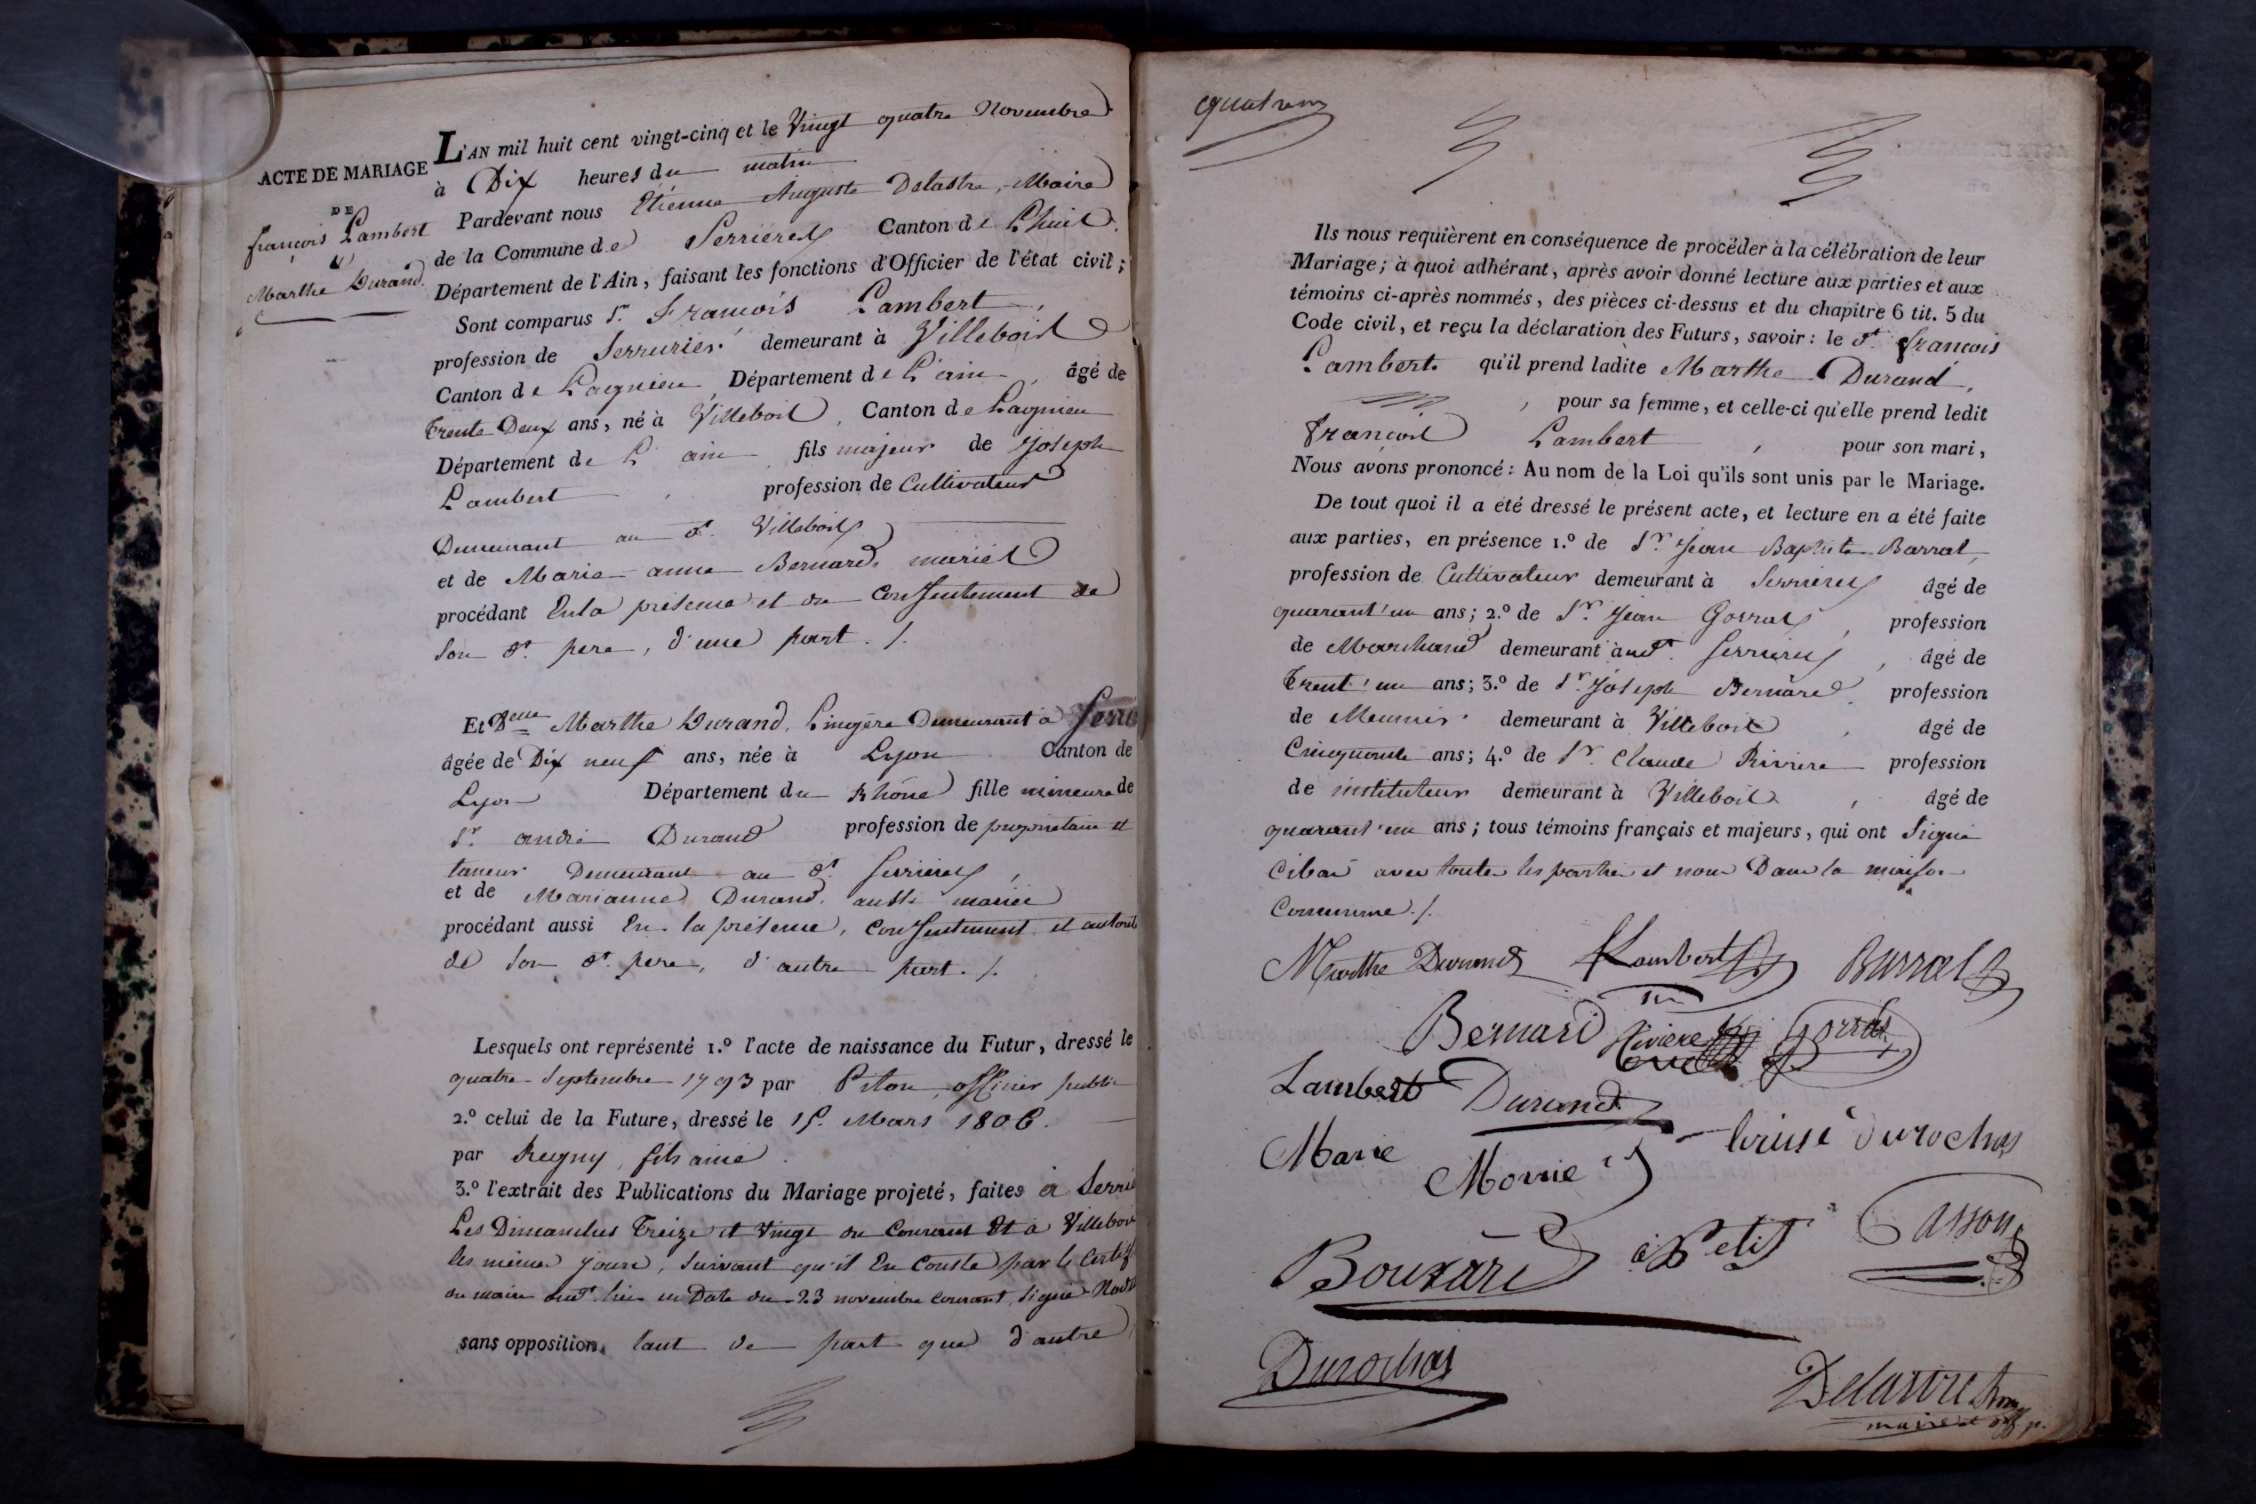 ACTE DE MARIAGE
DE
françois Lambert
&
Marthe Durand.
L'AN mil huit cent vingt-cinq et le Vingt quatre Novembre
à Dix heures du matin
Pardevant nous Etienne Auguste Delastre, Maire
de la Commune de Serrieres Canton de Lhuis.
Département de l'Ain, faisant les fonctions d'Officier de l'état civil;
Sont comparus Sr. François Lambert,
profession de Serrurier demeurant à Villebois
Canton de Lagnieu, Département de L'ain, âgé de
Trente Deux ans, né à Villebois, Canton de Lagnieu
Département de L'ain fils majeur de Joseph
Lambert, profession de Cultivateur
Demeurant au dt. Villebois
et de Marie anne Bernard, mariés
procédant En la présence et du Consentement de
son dt. pere, d'une part. /.
Et Delle Marthe Durand, Lingère Demeurant à Serri
âgée de Dix neuf ans, née à Lyon Canton de
Lyon Département du Rhône fille mineure de
Sr. andré Durand profession de propriétaire et
taneur Demeurant au dt. Serrieres,
et de Marianne Durand. aussi mariés
procédant aussi En la présence, Consentement et autorité
de son dt. pere, d'autre part. /.
Lesquels ont représenté 1.º l'acte de naissance du Futur, dressé le
quatre Septembre 1793 par Piton, officier public
2.º celui de la Future, dressé le 15. Mars 1806.
par Regny, fils ainé.
3.º l'extrait des Publications du Mariage projeté, faites à Serri
Les Dimanches Treize et Vingt du Courant Et à Villebois
les mêmes jours, suivant qu'il En Conste par le Certif
du maire dudt. lieu en Date du 23 novembre courant, signé
sans opposition, tant de part que d'autre
Ils nous requièrent en conséquence de procéder à la célébration de leur
Mariage; à quoi adhérant, après avoir donné lecture aux parties et aux
témoins ci-après nommés, des pièces ci-dessus et du chapitre 6 tit. 5 du
Code civil, et reçu la déclaration des Futurs, savoir: le dt. françois
Lambert. qu'il prend ladite Marthe Durand,
, pour sa femme, et celle-ci qu'elle prend ledit
François Lambert, pour son mari,
Nous avons prononcé: Au nom de la Loi qu'ils sont unis par le Mariage.
De tout quoi il a été dressé le présent acte, et lecture en a été faite
aux parties, en présence 1.º de Sr. Jean Baptiste Barral,
profession de Cultivateur demeurant à Serrieres âgé de
quarant'un ans; 2.º de Sr. Jean Gorrat, profession
de Marchand demeurant audt. Serrieres, âgé de
Trent'un ans; 3.º de Sr. Joseph Bernard profession
de Meunier demeurant à Villebois, âgé de
Cinquante ans; 4.º de Sr. Claude Riviere profession
de instituteur demeurant à Villebois, âgé de
quarant'un ans; tous témoins français et majeurs, qui ont Signé
Cibas avec toutes les parties et nous Dans la maison
Commune. /.
Marthe Durand Lambert Barral
Bernard Riviere Gorrat
Lambert Durand
Marie Morrie louise durochas
Bouxard Petit Casson
Durochas
Delastre
maire